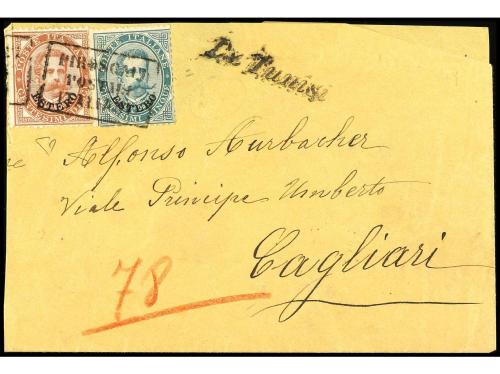 POSTE ITALIANE
ESTERO
POSTE ITALIANE
ESTERO
Da Tunisi
Alfonso Aurbacher
Viale Principe Umberto
Cagliari
78